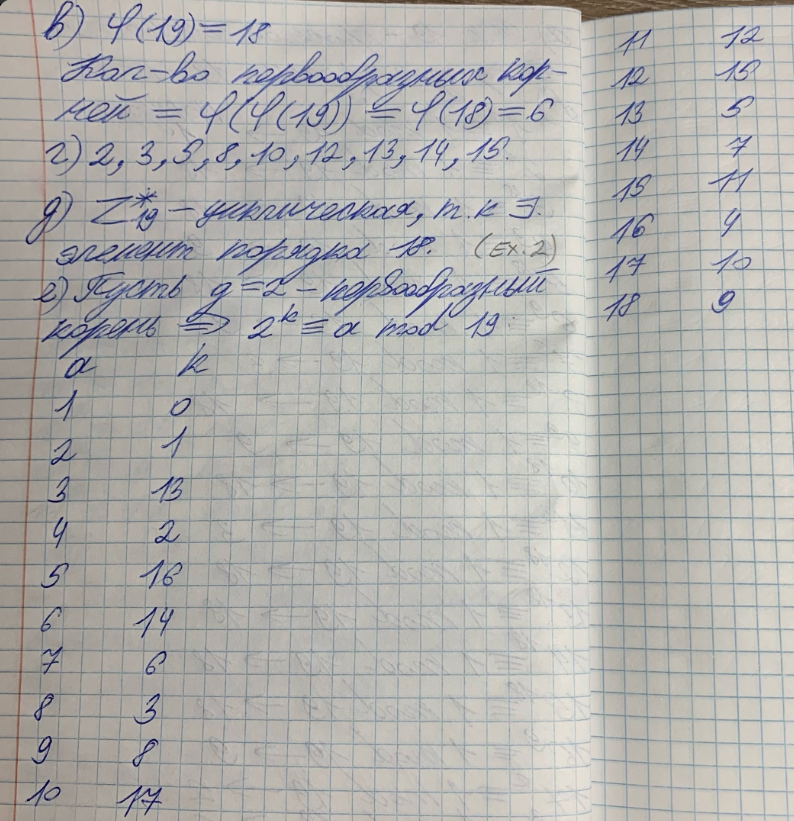 в) φ(19) = 18
Кол-во первообразных кор-
ней = φ(φ(19)) = φ(18) = 6
г) 2, 3, 5, 8, 10, 12, 13, 14, 15.
д) Z*19 – циклическая, т.к ∃
элемент порядка 18. (Ex. 2)
е) Пусть g = 2 – первообразный
корень => 2^k ≡ a mod 19
a k
1 0
2 1
3 13
4 2
5 16
6 14
7 6
8 3
9 8
10 17
11 12
12 15
13 5
14 7
15 11
16 4
17 10
18 9